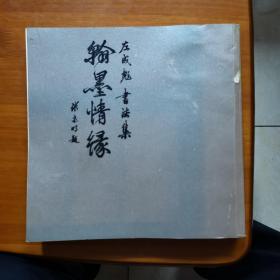 左成 书法集
翰墨情缘